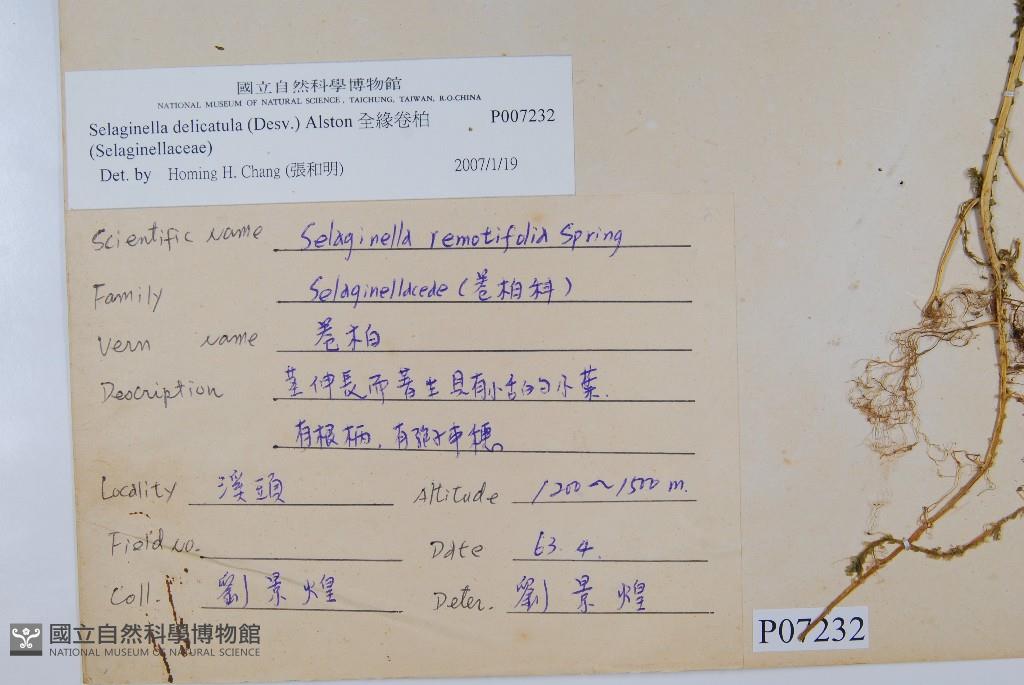 國立自然科學博物館
NATIONAL MUSEUM OF NATURAL SCIENCE, TAICHUNG, TAIWAN, R.O.CHINA
Selaginella delicatula (Desv.) Alston 全緣卷柏 P007232
(Selaginellaceae)
Det. by Homing H. Chang (張和明) 2007/1/19
Scientific name Selaginella remotifolia Spring
Family Selaginellaceae (卷柏科)
Vern name 卷柏
Description 莖伸長而著生具有小舌的小葉.
有根柄, 有孢子串穗。
Locality 溪頭 Altitude 1200~1500 m.
Field no.
Date 63. 4.
Coll. 劉景煌 Deter. 劉景煌
P07232
國立自然科學博物館
NATIONAL MUSEUM OF NATURAL SCIENCE